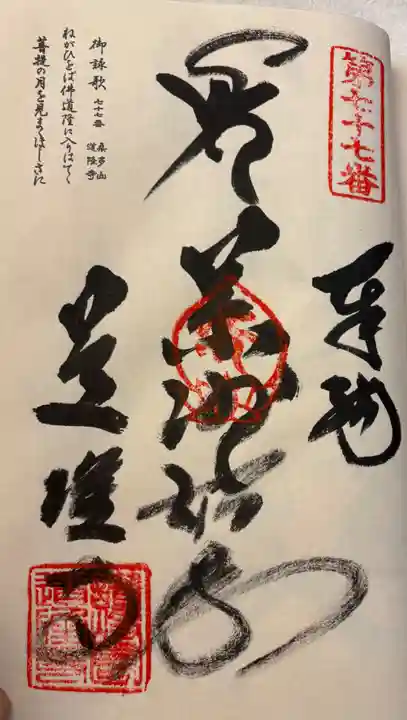 第七十七番
奉納
薬師如来
道隆寺
御詠歌 七十七番 桑多山 道隆寺
ねがひをば佛道隆に入りはてて
菩提の月を見まくほしさに